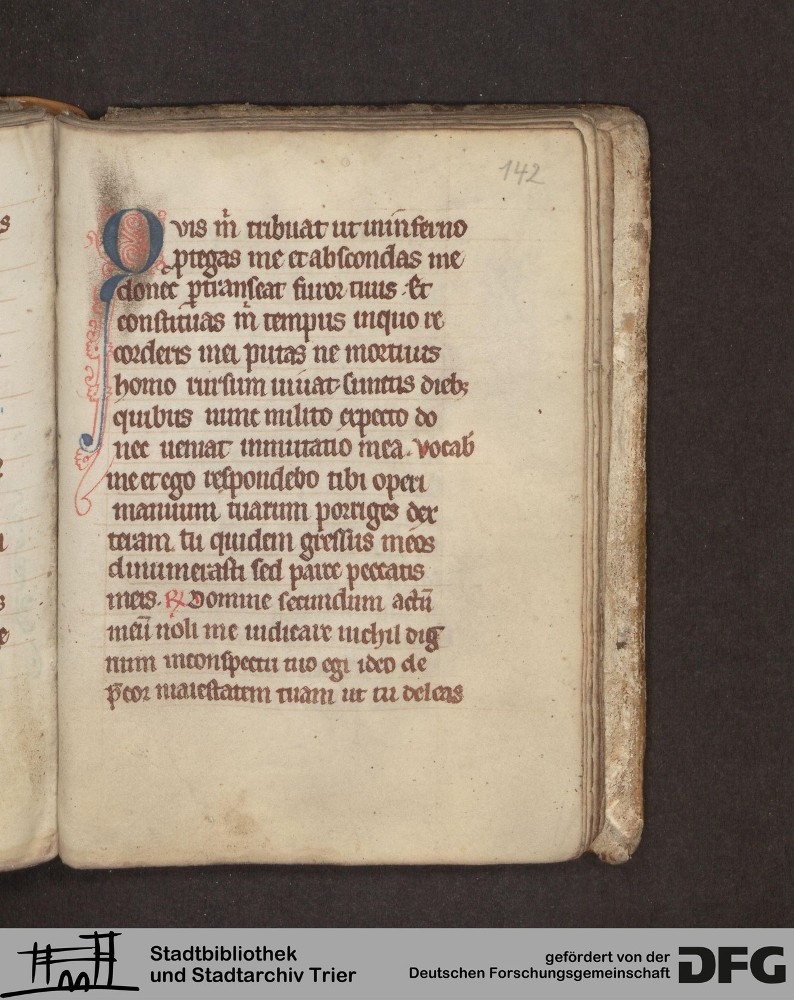 142
Quis m̄ tribuat ut in inferno
ꝓtegas me et abscondas me
donec p̱transeat furor tuus. Et
constituas m̄ tempus in quo re
corderis mei putas ne mortuus
homo rursum uiuat. Cunctis dieb;
quibus nunc milito expecto do
nec ueniat inmutatio mea. vocab̄
me et ego respondebo tibi operi
manuum tuarum porriges dex
teram. tu quidem gressus meos
dinumerasti sed parce peccatis
meis. R̸ Domine secundum actū
meū noli me iudicare nichil dig
num in conspectu tuo egi ideo de
p̄cor maiestatem tuam ut tu deleas
s
Stadtbibliothek
und Stadtarchiv Trier
gefördert von der
Deutschen Forschungsgemeinschaft
DFG